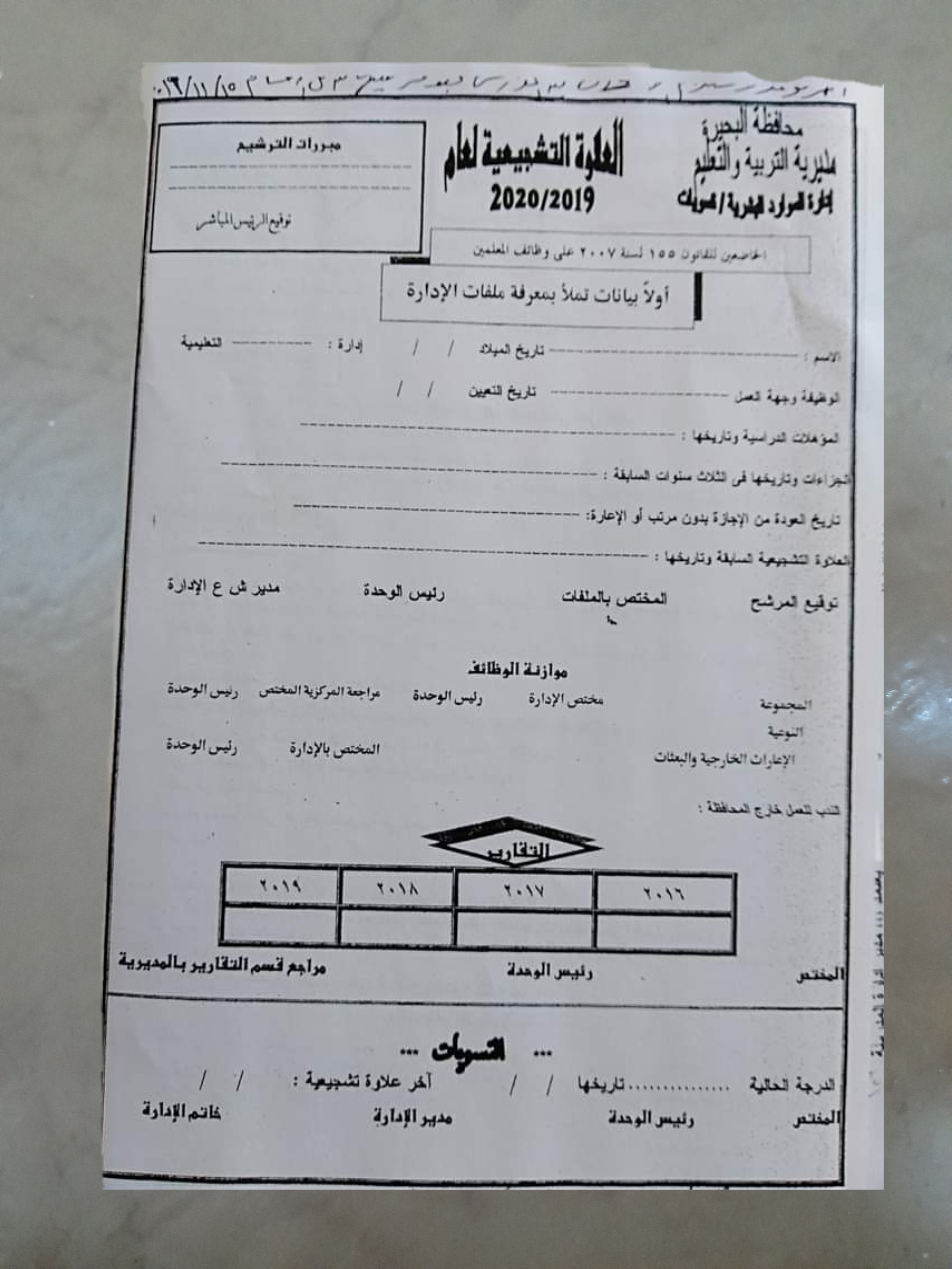 ٢٠١٦/١١/١٥
محافظة البحيرة
مديرية التربية والتعليم
إدارة الموارد البشرية / تسويات
العلاوة التشجيعية لعام
2020/2019
مبررات الترشيح
توقيع الرئيس المباشر
الخاضعين للقانون ١٥٥ لسنة ٢٠٠٧ على وظائف المعلمين
أولاً بيانات تملأ بمعرفة ملفات الإدارة
الاسم : ---------- تاريخ الميلاد / / إدارة : ---------- التعليمية
الوظيفة وجهة العمل ---------- تاريخ التعيين / /
المؤهلات الدراسية وتاريخها : ----------
الجزاءات وتاريخها فى الثلاث سنوات السابقة : ----------
تاريخ العودة من الإجازة بدون مرتب أو الإعارة: ----------
العلاوة التشجيعية السابقة وتاريخها : ----------
توقيع المرشح المختص بالملفات رئيس الوحدة مدير ش ع الإدارة
موازنة الوظائف
المجموعة مختص الإدارة رئيس الوحدة مراجعة المركزية المختص رئيس الوحدة
النوعية
الإعارات الخارجية والبعثات المختص بالإدارة رئيس الوحدة
الندب للعمل خارج المحافظة :
التقارير
٢٠١٦ ٢٠١٧ ٢٠١٨ ٢٠١٩
المختص رئيس الوحدة مراجع قسم التقارير بالمديرية
*** التسويات ***
الدرجة الحالية ............... تاريخها / / آخر علاوة تشجيعية : / /
المختص رئيس الوحدة مدير الإدارة خاتم الإدارة